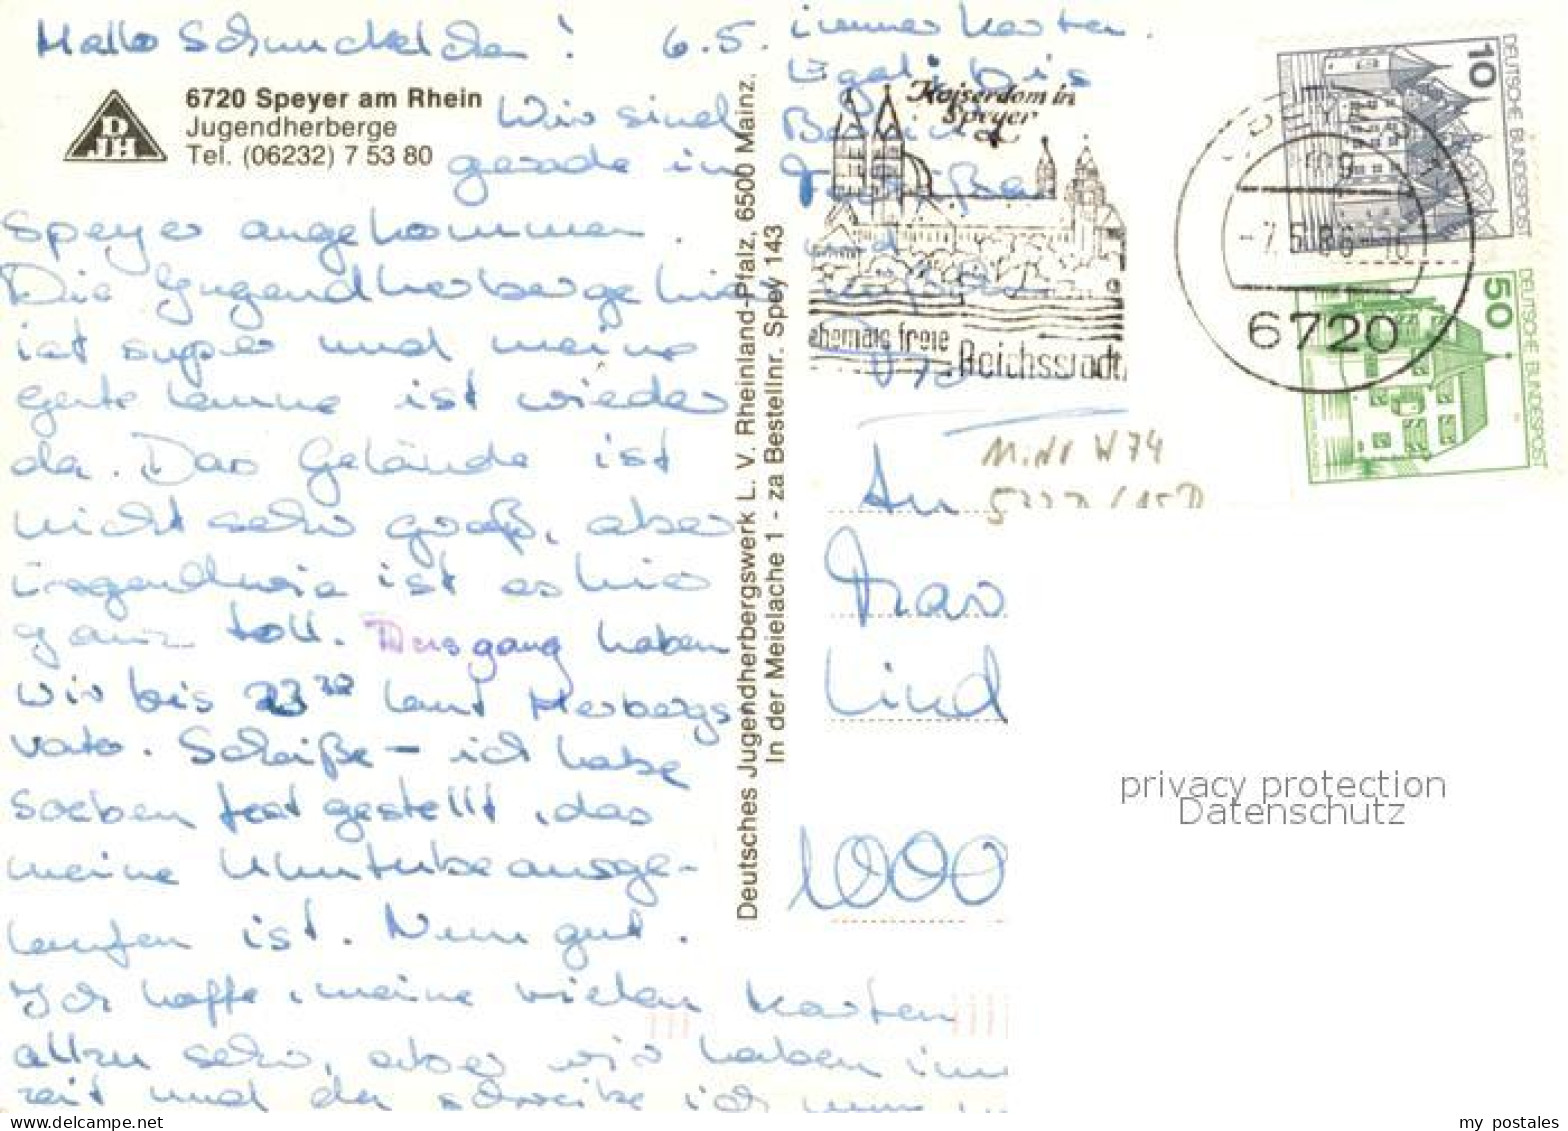 Hallo Schnuckelchen! 6.5.
6720 Speyer am Rhein
Jugendherberge
Tel. (06232) 7 53 80
DJH
Wir sind
gerade in
Speyer angekommen.
Die Jugendherberge hier
ist super und meine
gute Laune ist wieder
da. Das Gelände ist
nicht sehr groß, aber
irgendwie ist es hier
ganz toll. Ausgang haben
wir bis laut Herbergs
vater. Scheiße – ich habe
soeben fest gestellt, das
meine ausge-
laufen ist. Nun gut.
Ich hoffe, meine vielen Karten
allzu sehr, aber wir haben
zeit und da schreibe ich
immer Karten.
Egal, bis
und
Deutsches Jugendherbergswerk L. V. Rheinland-Pfalz, 6500 Mainz,
In der Meielache 1 - za Bestellnr. Spey 143
Kaiserdom in
Speyer
ehemals freie
Reichsstadt
-7.5.86-16
6720
10
DEUTSCHE BUNDESPOST
50
DEUTSCHE BUNDESPOST
An
Lind
1000
privacy protection
Datenschutz
my postales